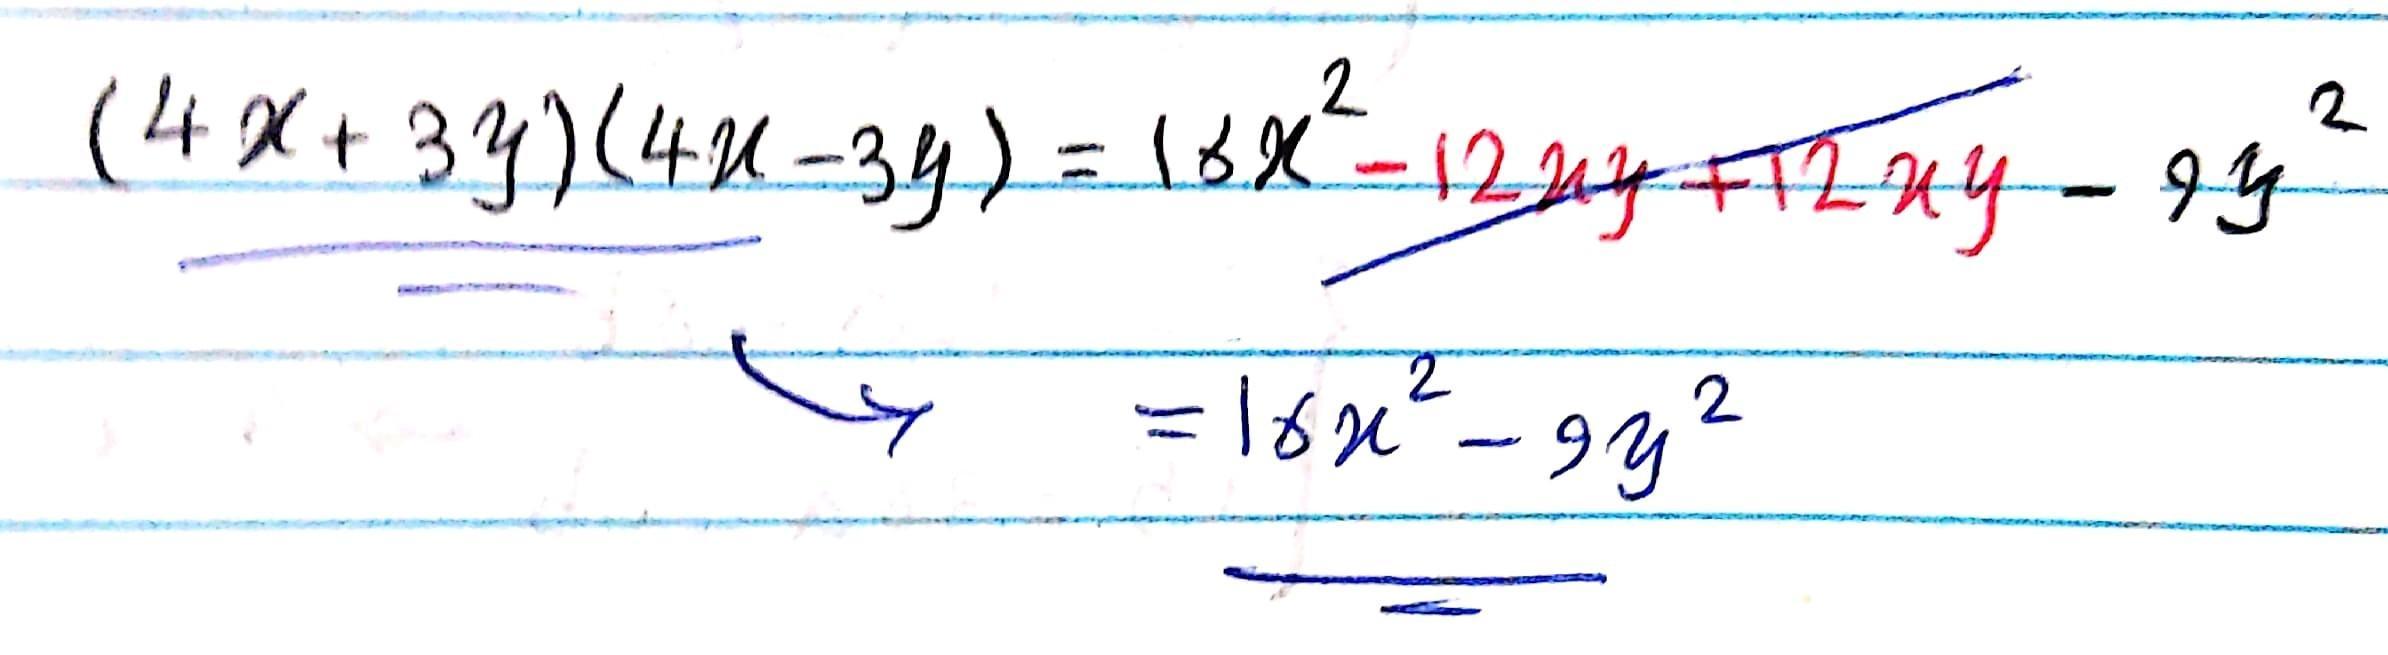 (4x+3y)(4x-3y) = 16x² -12xy +12xy - 9y²
= 16x² - 9y²